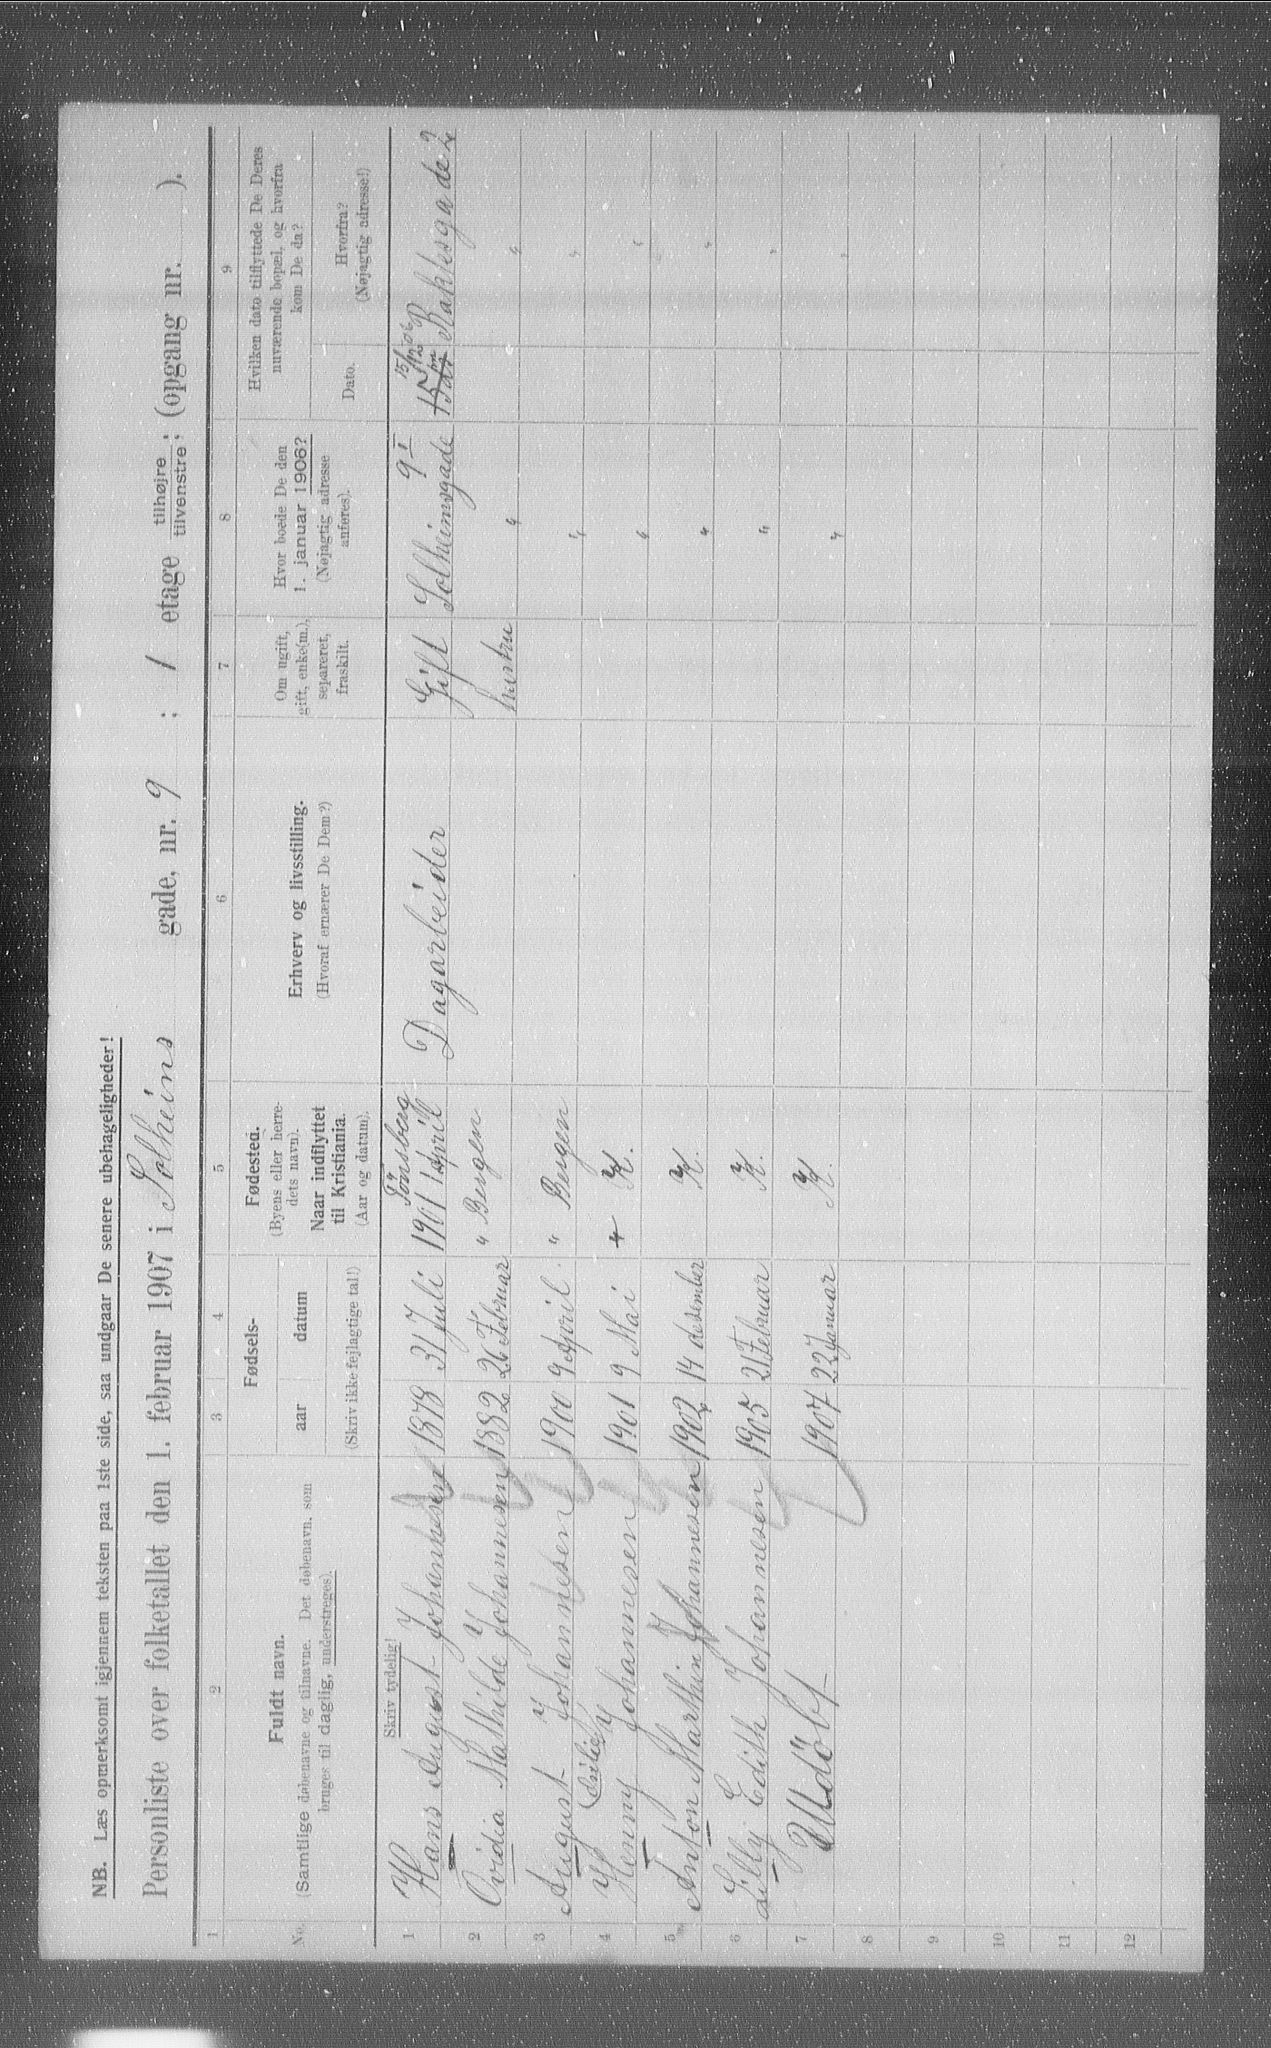 NB. Læs opmerksomt igjennem teksten paa 1ste side, saa undgaar De senere ubehageligheder!
Personliste over folketallet den 1. februar 1907 i Solheims gade, nr. 9 ; 1 etage tilhøjre, tilvenstre, (opgang nr. ).
1 2 3 4 5 6 7 8 9
No. Fuldt navn. (Samtlige døbenavne og tilnavne. Det døbenavn, som bruges til daglig, understreges).
Fødsels- aar datum (Skriv ikke fejlagtige tal!)
Fødested. (Byens eller herredets navn). Naar indflyttet til Kristiania. (Aar og datum).
Erhverv og livsstilling. (Hvoraf ernærer De Dem?)
Om ugift, gift, enke(m.), separeret, fraskilt.
Hvor boede De den 1. januar 1906? (Nøjagtig adresse anføres).
Hvilken dato tilflyttede De Deres nuværende bopæl, og hvorfra kom De da?
Dato. Hvorfra? (Nøjagtig adresse!)
Skriv tydelig!
1 Hans August Johannesen 1878 31 Juli Tönsberg 1901 1 April Dagarbeider Gift Solheimsgade 9 I 15/12 06 Rathkesgade 2
2 Ovidia Mathilde Johannesen 1882 26 Februar " Bergen hustru " "
3 August Johannesen 1900 9 April " Bergen " "
4 Henny Johannesen 1901 9 Mai " K. " "
5 Anton Marthin Johannesen 1902 14 desember K. " "
6 Lilly Edith Johannesen 1905 21 Februar K. " "
7 Udöbt 1907 22 Januar K. " "
8
9
10
11
12